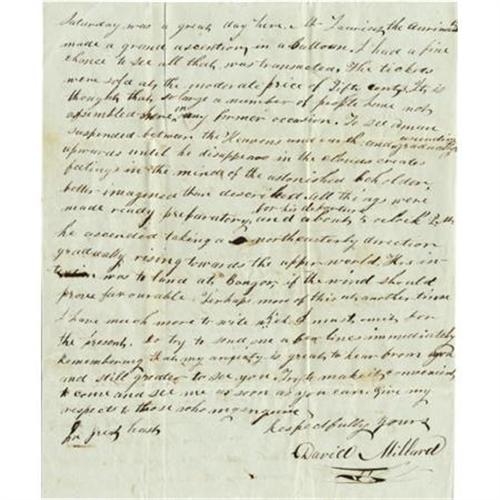 Saturday was a great day here. Mr Lauriens, the
made a grand ascention, in a balloon. I had a fine
chance to see all that was transacted. The tickets
were sold at the moderate price of fifty cents. It is
thought that so large a number of people have not
assembled here, on any former occasion. To see a man
suspended between the Heavens and earth, and gradually ascending
upwards until he disappears in the clouds creates
feelings in the minds of the astonished beholder,
better imagined than described. All things were
made ready preparatory for his departure, and about o clock P. M.
he ascended taking a northeasterly direction
gradually rising towards the upper world. His in-
tention was to land at Bangor, if the wind should
prove favourable. Perhaps more of this at another time
I have much more to write which I must omit for
the present. Do try to send me a few lines immediately
Remembering that my anxiety is great to hear from you
and still greater to see you. Try to make it convenient
to come and see me as soon as you can. Give my
respects to those who may enquire
In great haste Respectfully Yours
David Millard